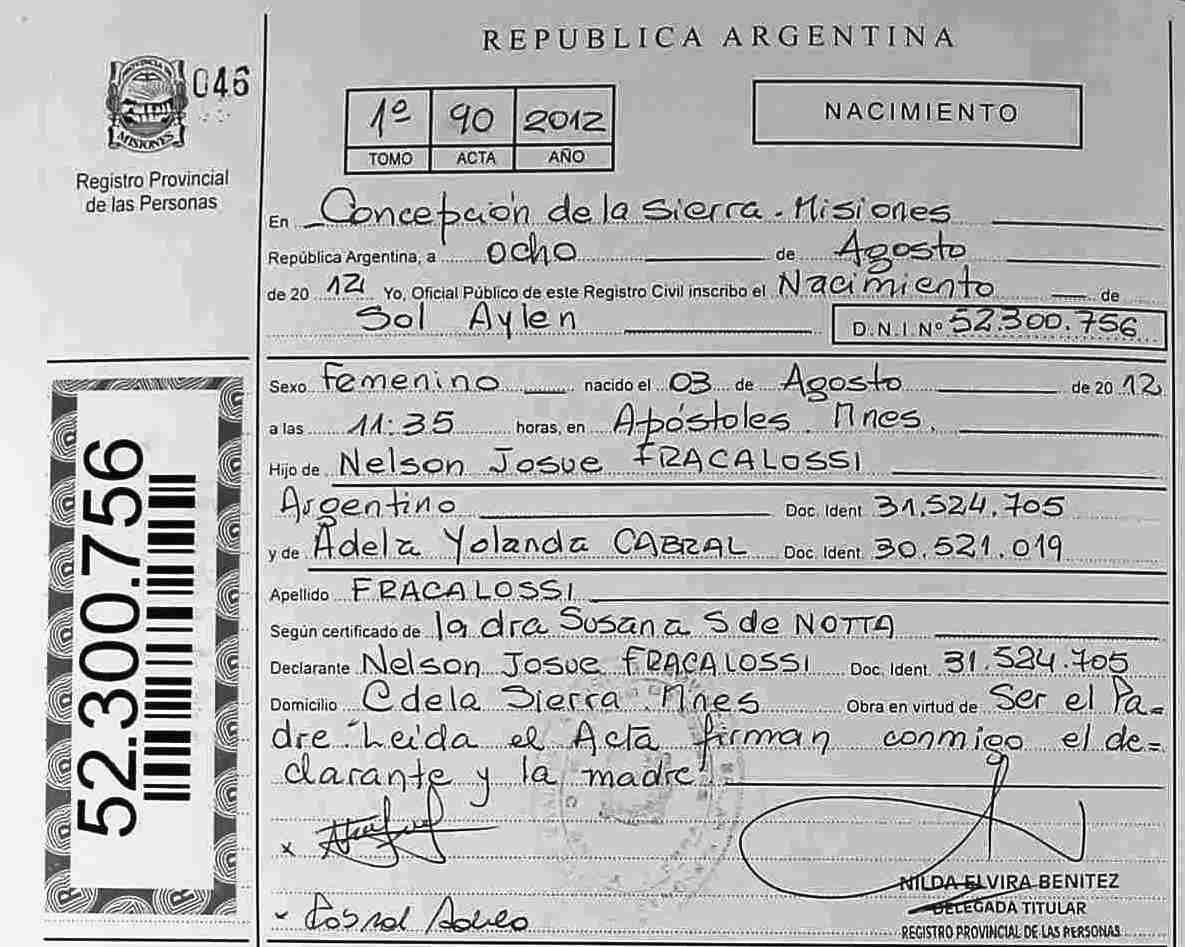 REPUBLICA ARGENTINA
046
PROVINCIA
MISIONES
Registro Provincial
de las Personas
1º 90 2012
TOMO ACTA AÑO
NACIMIENTO
En Concepción de la Sierra. Misiones
República Argentina, a ocho de Agosto
de 20 12 Yo, Oficial Público de este Registro Civil inscribo el Nacimiento de
Sol Aylen D.N.I.Nº 52.300.756
Sexo Femenino nacido el 03 de Agosto de 20 12
a las 11:35 horas, en Apóstoles. Mnes.
Hijo de Nelson Josue FRACALOSSI
Argentino Doc. Ident 31.524.705
y de Adela Yolanda CABRAL Doc. Ident. 30.521.019
Apellido FRACALOSSI
Según certificado de la dra Susana S de NOTTA
Declarante Nelson Josue FRACALOSSI Doc. Ident. 31.524.705
Domicilio C dela Sierra. Mnes Obra en virtud de Ser el Pa=
dre. Leida el Acta, firman conmigo el de=
clarante y la madre.
52.300.756
x
x
NILDA ELVIRA BENITEZ
DELEGADA TITULAR
REGISTRO PROVINCIAL DE LAS PERSONAS